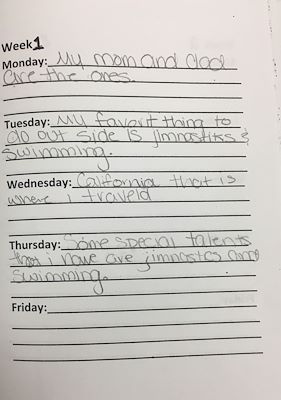 Week 1
Monday: My mom and dad
are the ones.
Tuesday: My favorit thing to
do out side is jimnastiks &
swimming.
Wednesday: California that is
where i traveld
Thursday: Some special talents
that i have are jimnastcs and
swimming.
Friday: